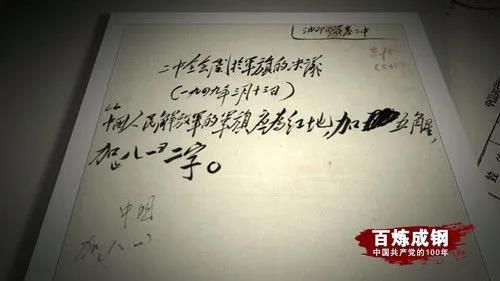 二中全会关于军旗的决议
(一九四九年三月十三日)
中国人民解放军的军旗应为红地，加五角星，
加“八一”二字。
中国
加“八一”
百炼成钢
中国共产党的100年